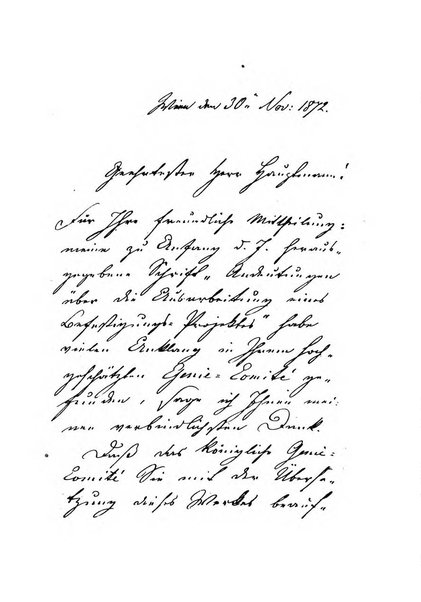 Wien den 30n Nov: 1872.
Geehrtester Herr Hauptmann!
Für Ihre freundliche Mittheilung:
meine zu Anfang d. J. heraus-
gegebene Schrift „Andeutungen
über die Ausarbeitung eines
Befestigungs-Projektes“ habe
vielen Anklang in Ihrem hoch-
geschätzten Genie-Comité ge-
funden, sage ich Ihnen mei-
nen verbindlichsten Dank.
Daß das königliche Genie-
Comité Sie mit der Überse-
tzung dieses Werkes beauf-